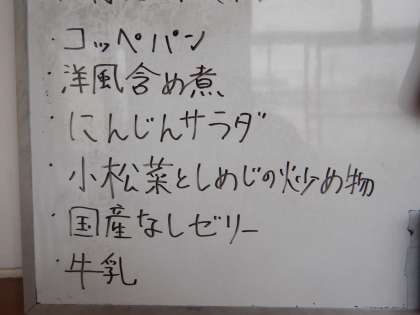 ・コッペパン
・洋風含め煮
・にんじんサラダ
・小松菜としめじの炒め物
・国産なしゼリー
・牛乳